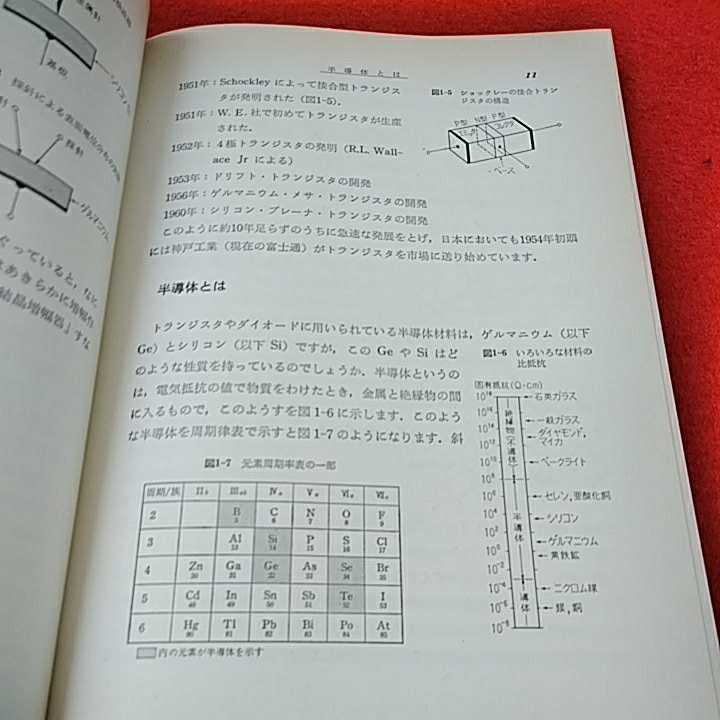 半導体とは 11
1951年：Schockley によって接合型トランジス
タが発明された（図1-5）．
1951年：W. E. 社で初めてトランジスタが生産
された．
1952年：4極トランジスタの発明（R.L. Wall-
ace Jr による）
1953年：ドリフト・トランジスタの開発
1956年：ゲルマニウム・メサ・トランジスタの開発
1960年：シリコン・プレーナ・トランジスタの開発
図1-5 ショックレーの接合トラン
ジスタの構造
P型 N型 P型
エミッタ
コレクタ
ベース
このように約10年足らずのうちに急速な発展をとげ，日本においても1954年初頭
には神戸工業（現在の富士通）がトランジスタを市場に送り始めています．
半導体とは
トランジスタやダイオードに用いられている半導体材料は，ゲルマニウム（以下
Ge）とシリコン（以下 Si）ですが，この Ge や Si はど
のような性質を持っているのでしょうか．半導体というの
は，電気抵抗の値で物質をわけたとき，金属と絶縁物の間
に入るもので，このようすを図1-6に示します．このよう
な半導体を周期律表で示すと図1-7のようになります．斜
図1-6 いろいろな材料の
比抵抗
固有抵抗(Ω·cm)
絶縁物(不導体)
半導体
導体
石英ガラス
一般ガラス
ダイヤモンド，
マイカ
ベークライト
セレン，亜酸化銅
シリコン
ゲルマニウム
黄鉄鉱
ニクロム線
銀，銅
図1-7 元素周期率表の一部
周期/族 II b IV a V a VI a
2 B C N O F
5 6 7 8 9
3 Al Si P S Cl
13 14 15 16 17
4 Zn Ga Ge As Se Br
5 Cd In Sn Sb Te I
48 49 50 51 52 53
6 Hg Tl Pb Bi Po At
80 81 82 83 84 85
内の元素が半導体を示す
基板
ゲルマニウム